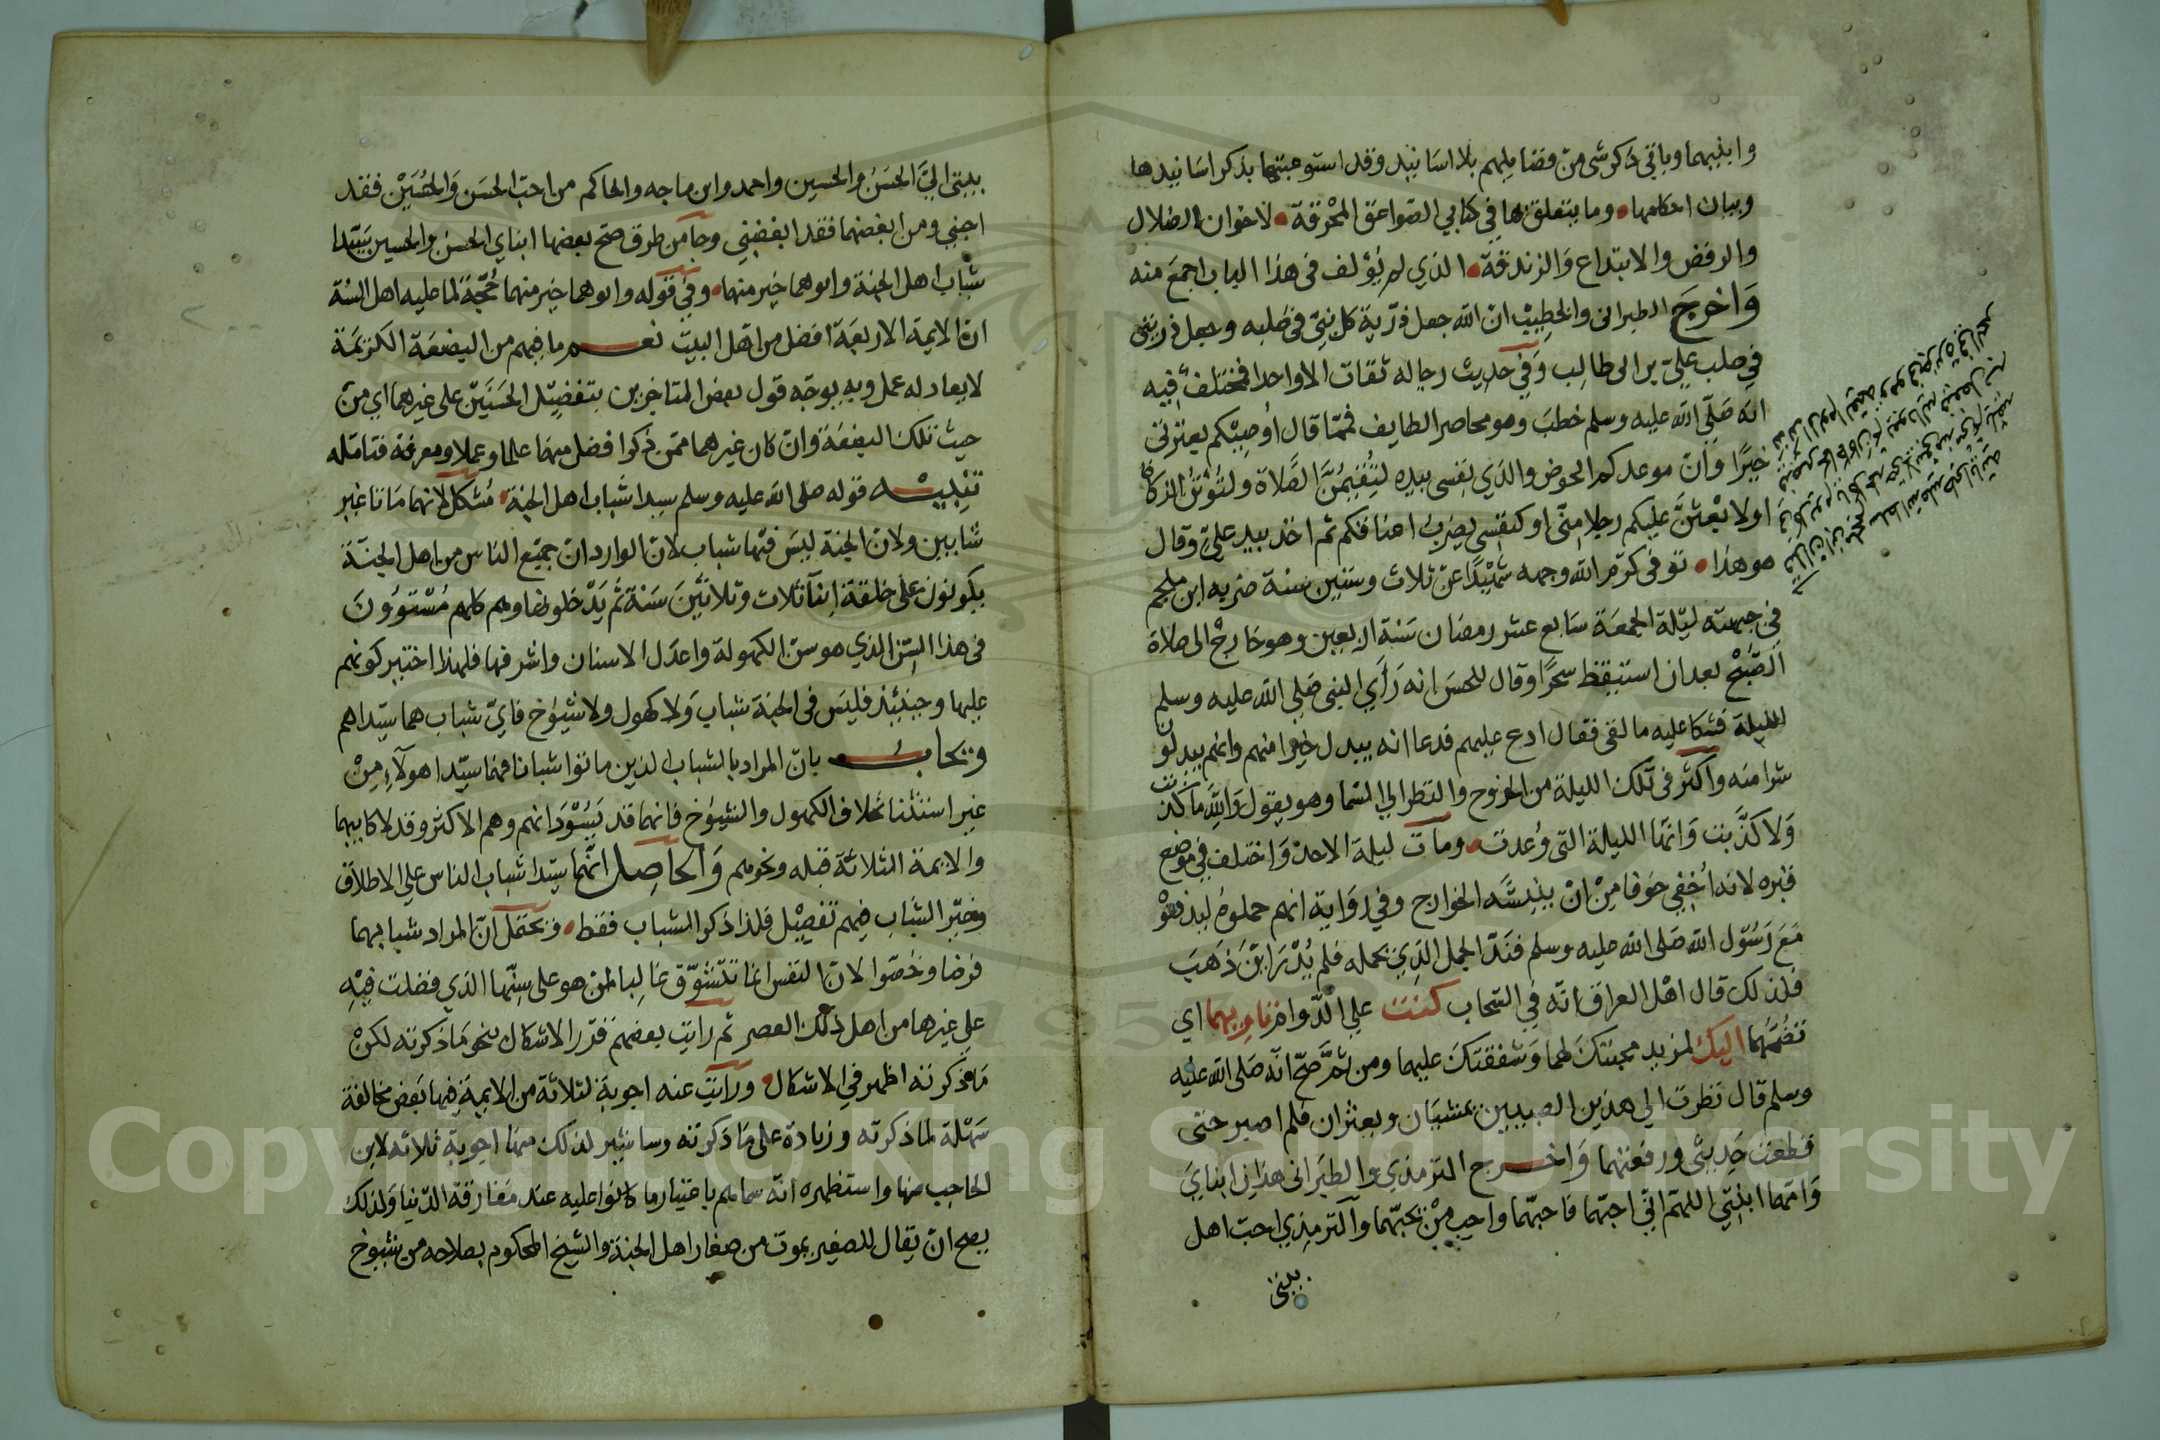 وابنيهما وباقي ذكر شى من فضايلهم بلا اسانيد وقد استوعبتها بذكر اسانيدها
وبيان احكامها وما يتعلق بها في كتابي الصواعق المحرقة لاخوان الضلال
والرفض والابتداع والزندقة الذي لم يؤلف فى هذا الباب اجمع منه
واخرج الطبرانى والخطيب ان الله جعل ذرية كل نبي فى صلبه وجعل ذريتى
في صلب علي بن ابى طالب وفي حديث رجاله ثقات الا واحدا فمختلف فيه
انه صلى الله عليه وسلم خطب وهو محاصر الطايف فمما قال اوصيكم بعترتى
خيرا وان موعدكم الحوض والذي نفسى بيده لتقيمن الصلاة ولتؤتن الزكاة
او لابعثن عليكم رجلا منى او كنفسى يضرب اعناقكم ثم اخذ بيد علي وقال
هو هذا توفى كرم الله وجهه شهيدا عن ثلاث وستين سنة ضربه ابن ملجم
في جبهته ليلة الجمعة سابع عشر رمضان سنة اربعين وهو خارج الى صلاة
الصبح بعد ان استيقظ سحرا وقال للحسن انه رأي النبى صلى الله عليه وسلم
الليلة فشكا عليه ما لقى فقال ادع عليهم فدعا انه يبدل خيرا منهم وانهم يبدلون
شرا منه واكثر فى تلك الليلة من الخروج والنظر الي السما وهو يقول والله ما كذبت
ولا كذبت وانها الليلة التى وعدت ومات ليلة الاحد واختلف في موضع
قبره لانه أخفي خوفا من ان ينبشه الخوارج وفي رواية انهم حملوه ليدفنوه
مع رسول الله صلى الله عليه وسلم فند الجمل الذي يحمله فلم يدر اين ذهب
فلذلك قال اهل العراق انه في السحاب كنت علي الدوام تاويهما اي
تضمهما اليك لمزيد محبتك لهما وشفقتك عليهما ومن ثم صح انه صلى الله عليه
وسلم قال نظرت الي هذين الصبيين يمشيان ويعثران فلم اصبر حتى
قطعت حديثى ورفعتهما واخرج الترمذي والطبرانى هذان ابناي
وابنا ابنتي اللهم اني احبهما فاحبهما واحب من يحبهما والترمذي احب اهل
بيتى
بيتى الي الحسن والحسين واحمد وابن ماجه والحاكم من احب الحسن والحسين فقد
احبني ومن ابغضهما فقد ابغضني وجا من طرق صح بعضها ابناي الحسن والحسين سيدا
شباب اهل الجنة وابوهما خير منهما وفي قوله وابوهما خير منهما حجة لما عليه اهل السنة
ان الايمة الاربعة افضل من اهل البيت نعم ما فيهم من البضعة الكريمة
لا يعادله عمل وبه يوجه قول بعض المتاخرين بتفضيل الحسنين على غيرهما اي من
حيث تلك البضعة وان كان غيرهما ممن ذكروا افضل منهما علما وعملا ومعرفة فتامله
تنبيه قوله صلى الله عليه وسلم سيدا شباب اهل الجنة مشكل لانهما ماتا غير
شابين ولان الجنة ليس فيها شباب لان الوارد ان جميع الناس من اهل الجنة
يكونون على خلقة ابنآ ثلاث وثلاثين سنة ثم يدخلونها وهم كلهم مستوون
فى هذا السن الذي هو سن الكهولة واعدل الاسنان واشرفها فلهذا اختير كونهم
عليها وحينئذ فليس فى الجنة شباب ولا كهول ولا شيوخ فاي شباب هما سيداهم
ويجاب بان المراد بالشباب الذين ماتوا شبانا فهما سيدا هولآء من
غير استثنا بخلاف الكهول والشيوخ فانهما قد يسودانهم وهم الاكثر وقد لا كابيهما
والايمة الثلاثة قبله ونحوهم والحاصل انهما سيدا شباب الناس علي الاطلاق
وغير الشباب فيهم تفصيل فلذا ذكر الشباب فقط ويحتمل ان المراد شبابهما
فرضا وخصوا لان النفس انما تتشوق غالبا لمن هو على سنها الذي فضلت فيه
على غيرها من اهل ذلك العصر ثم رايت بعضهم قرر الاشكال بنحو ما ذكرته لكن
ما ذكرته اظهر في الاشكال ورايت عنه اجوبة لثلاثة من الايمة فيها بعض مخالفة
سهلة لما ذكرته وزيادة على ما ذكرته وساشير لذلك منها اجوبة ثلاثة لابن
الحاجب منها واستظهره انه سماهم باعتبار ما كانوا عليه عند مفارقة الدنيا ولذلك
يصح ان يقال للصغير يموت من صغار اهل الجنة والشيخ المحكوم بصلاحه من شيوخ